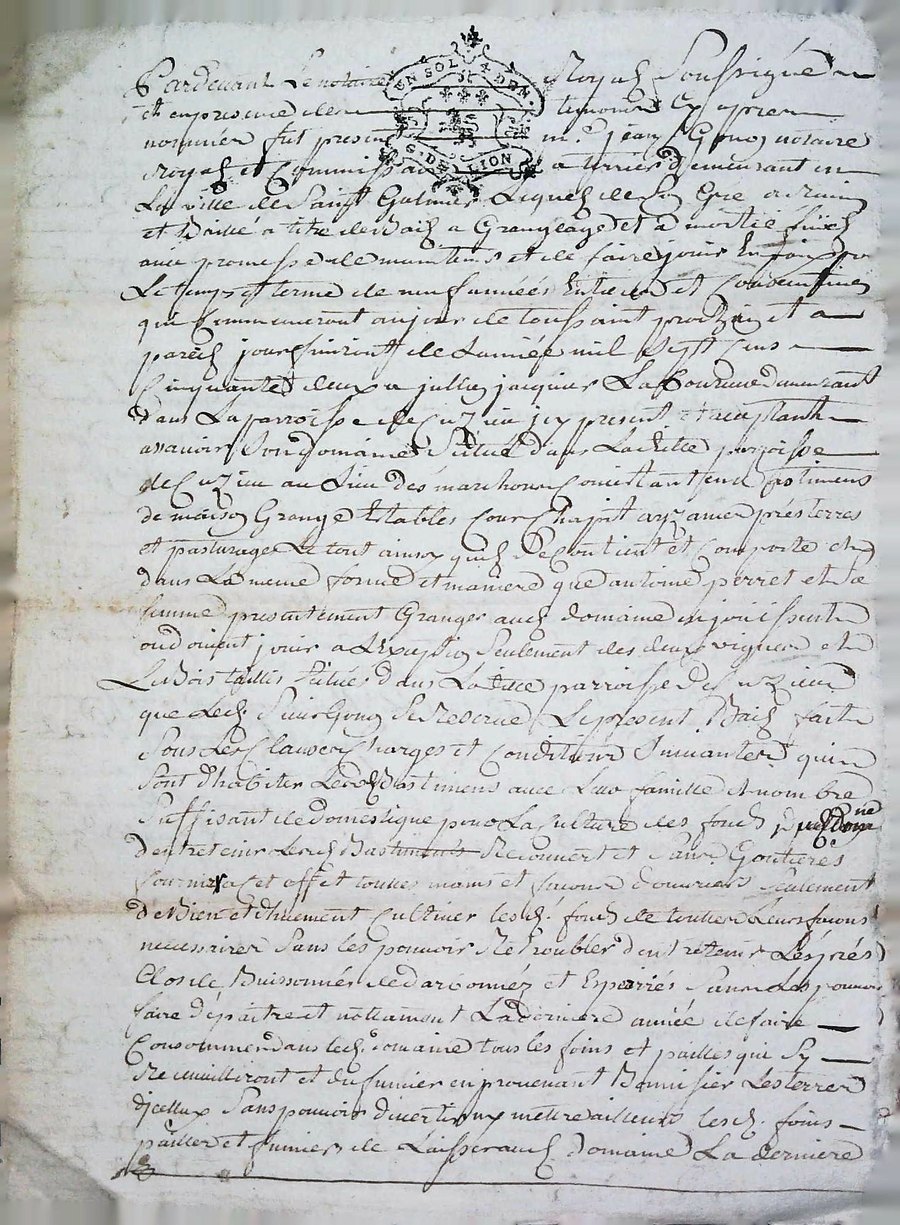 Pardevant Le notaire Royal Soussigné
UN SOL 4 DEN.
G. DE LION
et en presence des temoins cy apres
nommés fut present m.e jean Gonon notaire
Royal et Commissaire a terriers demeurant en
La ville de Saint Galmier Lequel de Son Gré a
et Baillé a titre de Bail a Grangeage et a moitié fruits
avec promesse de maintenir et de faire jouir
Le temps et terme de neuf années Entieres et Consecutives
qui Commenceront au jour de toussaint prochain et a
pareil jour finiront de Lannée mil Sept Cens
Cinquante deux a jacques demeurant
dans La parroisse de Cuzieu jcy present et acceptant
a savoir Son domaine Situé dans Ladite parroisse
de Cuzieu au Lieu des Consistant en Bastimens
de maison Grange Estables Cour Chapit prés terres
et pasturages Le tout ainsy quil Se Contient et Comporte et
dans La meme forme et maniere que antoine perret et Sa
femme presentement Granger audt domaine en jouissent
ou doivent jouir a LExeption Seulement des deux vignes et
Du Bois taillis Situés dans Ladite parroisse de Cuzieu
que Ledt Sieur Gonon Se Reserve Le present Bail fait
Sous Les Clauses Charges et Conditions Suivantes qui
Sont dhabiter Lesdt Bastimens avec Leur famille et nombre
Suffisant de Domestique pour La Culture des fonds
d'entretenir Lesdt Bastiments Recouvert et Sans Goutieres
fournir a Cet effet toutes mains et façons d'ouvriers Seulement
de Bien et Duement Cultiver lesdt fonds de toutes Leurs façons
necessaires Sans les pouvoir Retroubler dentretenir Les prés
Clos de Buissonnés et Esparriés Sans Les pouvoir
faire dépaitre et nottament La derniere année de faire
Consommer dans ledt domaine tous les foins et pailles qui Sy
Recueilliront et du fumier en provenant Bonnifier Les terres
djcelluy Sans pouvoir divertir ny mettre ailleurs lesdt foins
pailles et fumiers de Laisser audt Domaine La derniere